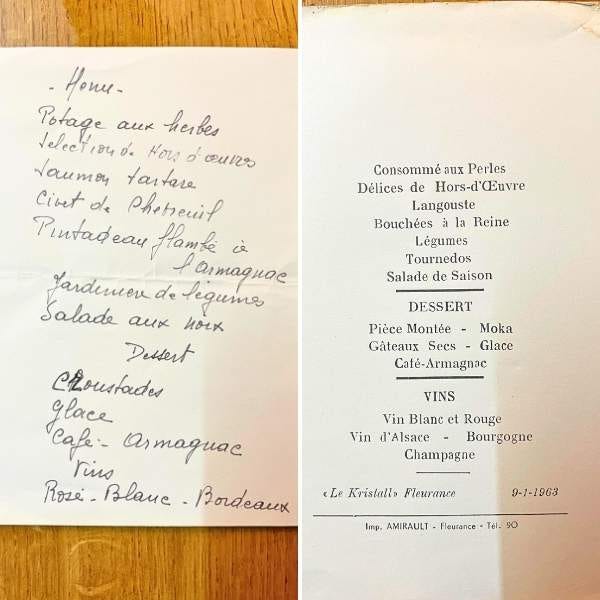 - Menu -
Potage aux herbes
Selection de Hors d'œuvres
Saumon tartare
Civet de Chevreuil
Pintadeau flambé à
l'Armagnac
Jardinière de légumes
Salade aux noix
Dessert
Croustades
Glace
Café - Armagnac
Vins
Rosé - Blanc - Bordeaux
Consommé aux Perles
Délices de Hors-d'Œuvre
Langouste
Bouchées à la Reine
Légumes
Tournedos
Salade de Saison
DESSERT
Pièce Montée - Moka
Gâteaux Secs - Glace
Café-Armagnac
VINS
Vin Blanc et Rouge
Vin d'Alsace - Bourgogne
Champagne
« Le Kristall » Fleurance 9-1-1963
Imp. AMIRAULT - Fleurance - Tél. 90